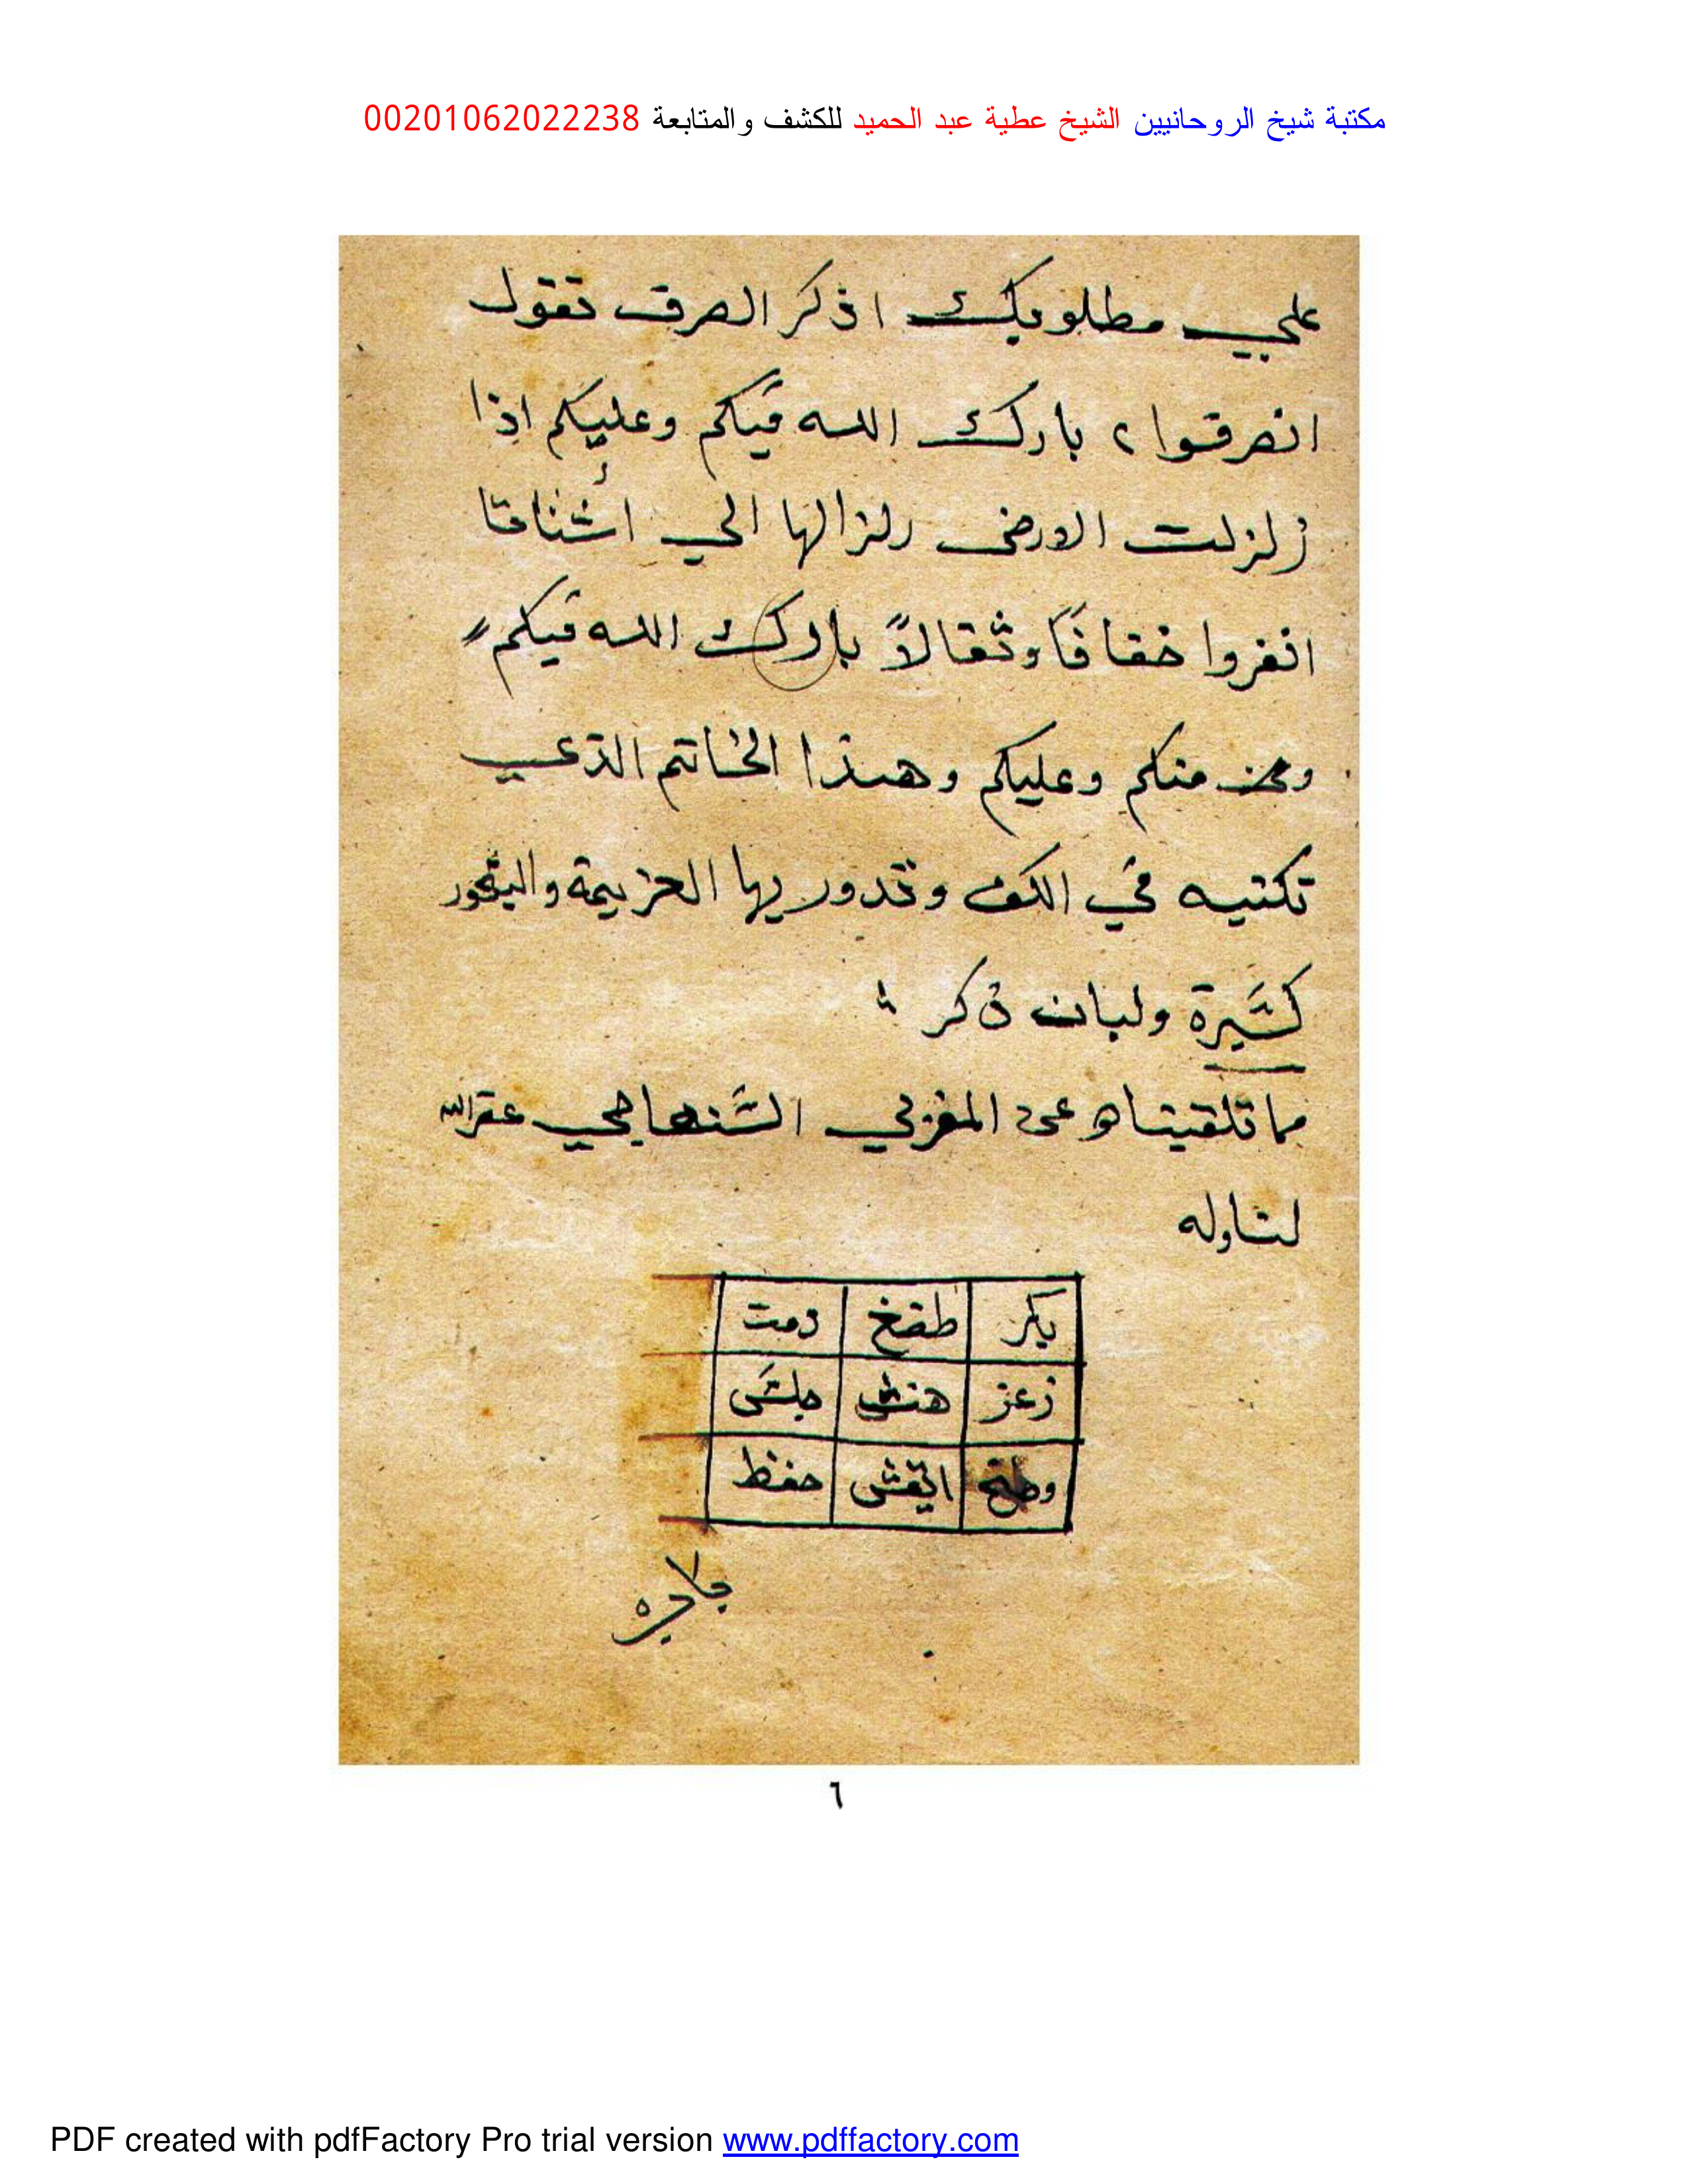 مكتبة شيخ الروحانيين الشيخ عطية عبد الحميد للكشف والمتابعة 00201062022238
علي مطلوبك اذكر الصرف تقول
انصرفوا ٢ بارك الله فيكم وعليكم اذا
زلزلت الارض زلزالها الي اشتاتا
انفروا خفافًا وثقالاً بارك الله فيكم
منكم وعليكم وهذا الخاتم الذي
تكتبه في الكف وتدور بها العزيمة والبخور
كثيرة ولبان ذكر
مما تلقيناه عن المغربي الشنهاجي غفر الله
لنا وله
بكر طضخ دمت
زعز هنش
وطتح حفظ
٦
PDF created with pdfFactory Pro trial version www.pdffactory.com